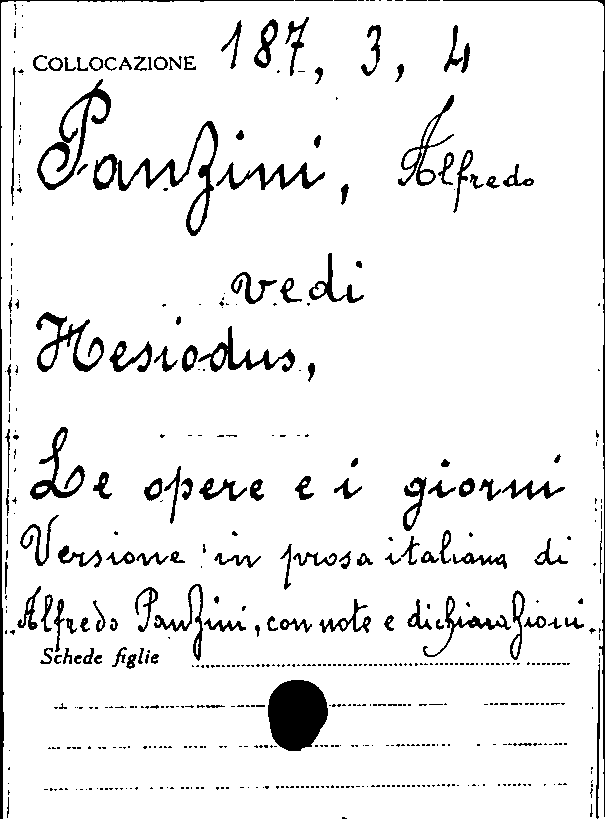 COLLOCAZIONE 187, 3, 4
Panzini, Alfredo
vedi
Hesiodus,
Le opere e i giorni
Versione in prosa italiana di
Alfredo Panzini, con note e dichiarazioni.
Schede figlie